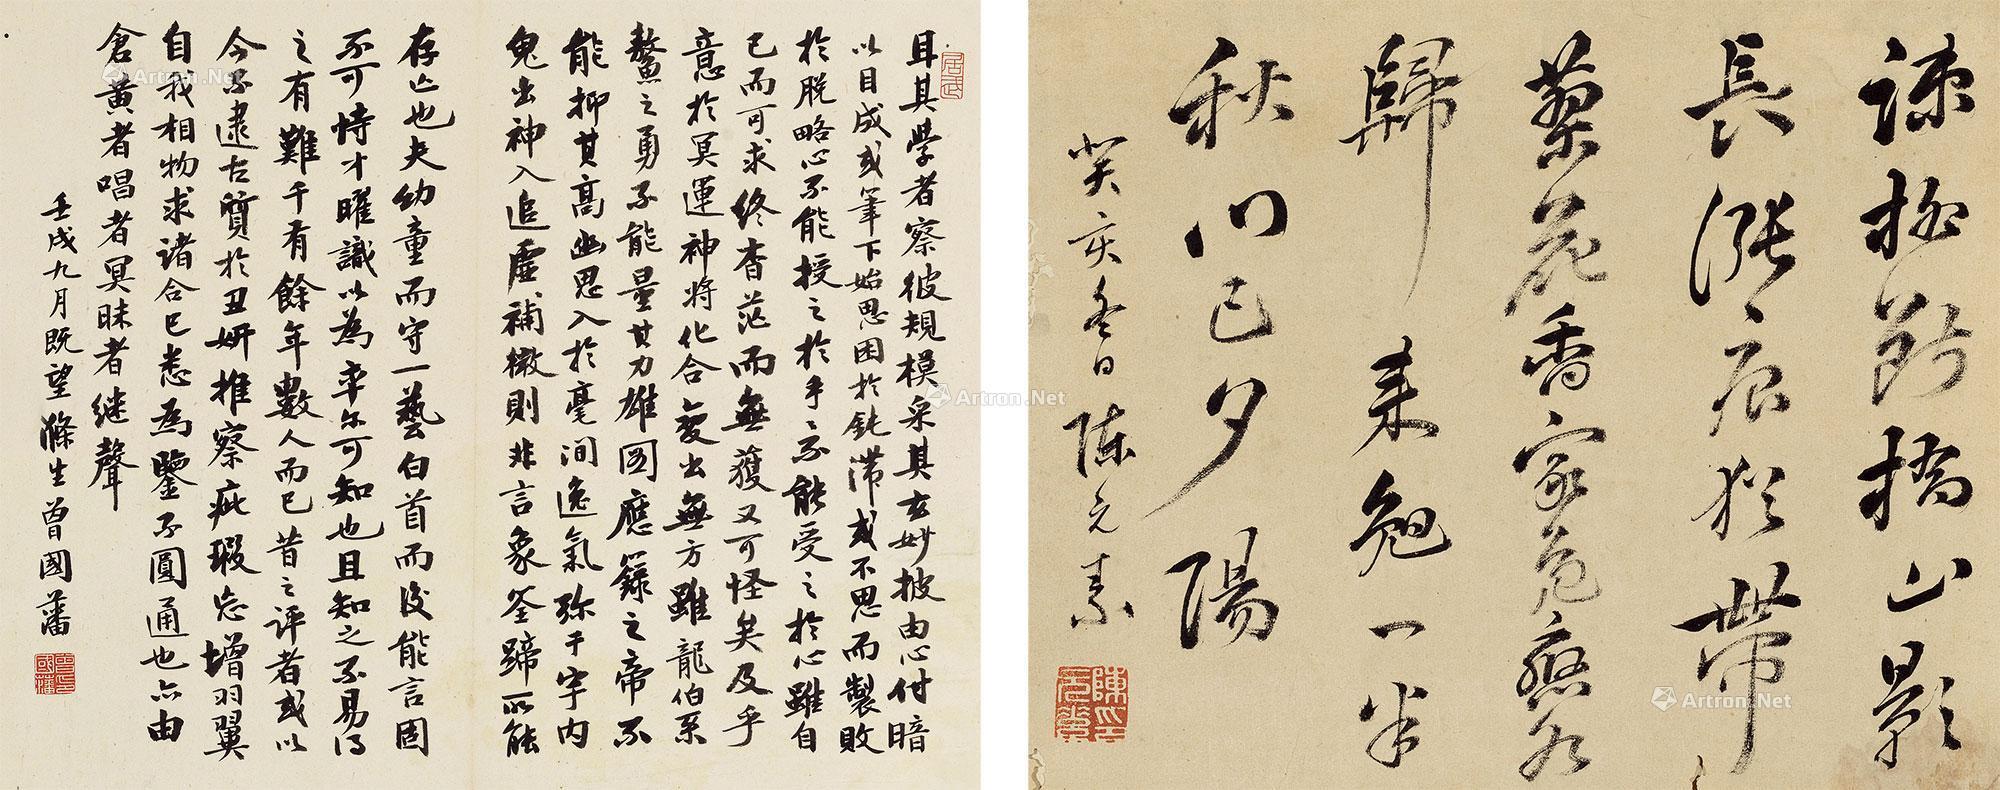 疎柳斷橋山影
長漲痕猶帶
蓼花香家
歸来勉一半
秋門已夕陽
癸亥冬日陳元素
耳其學者察彼規模采其玄妙披由心付暗
以目成或筆下始思困於鈍滞或不思而製敗
於脫略心不能授之於手手不能受之於心雖自
已而可求終杳茫而無獲又可怪矣及乎
意於冥運神將化合變出無方雖龍伯系
鰲之勇不能量其力雄圖應籙之帝不
能抑其高幽思入於毫間逸氣弥於宇內
鬼出神入追虛補微則非言象筌蹄所能
存亡也夫幼童而守一藝白首而後能言固
不可恃才曜識以為率尔可知也且知之不易得
之有難千有餘年數人而已昔之評者或以
今不逮古質於丑妍推察疵瑕妄增羽翼
自我相物求諸合已悉為鑒不圓通也亦由
倉黃者唱者冥昧者継聲
壬戌九月既望滌生曾國藩
Artron.Net
Artron.Net
Artron.Net
Artron.Net